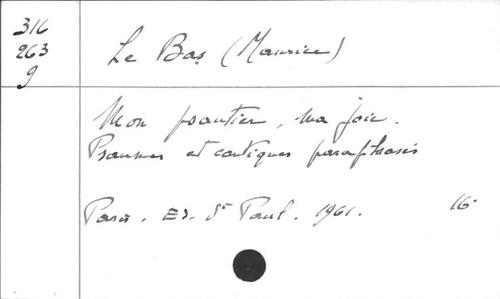 316
263
9
Le Bas (Maurice)
Mon psautier, ma joie.
Psaumes et cantiques paraphrasés
Paris. Ed. St Paul. 1961. 16°